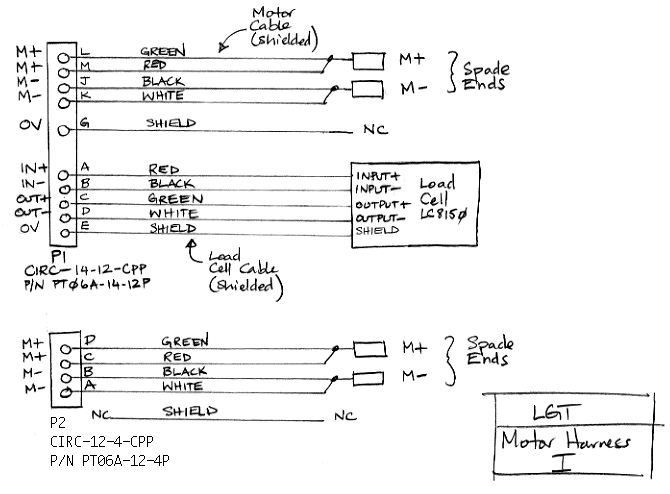 Motor
Cable
(shielded)
M+ L GREEN
M+ M RED M+
M- J BLACK
M- K WHITE M-
Spade
Ends
0V G SHIELD NC
IN+ A RED INPUT+
IN- B BLACK INPUT-
OUT+ C GREEN OUTPUT+
OUT- D WHITE OUTPUT-
0V E SHIELD SHIELD
Load
Cell
LC8150
P1
CIRC-14-12-CPP
P/N PT06A-14-12P
Load
Cell Cable
(shielded)
M+ D GREEN M+
M+ C RED
M- B BLACK M-
M- A WHITE
Spade
Ends
NC SHIELD NC
P2
CIRC-12-4-CPP
P/N PT06A-12-4P
LGT
Motor Harness
I